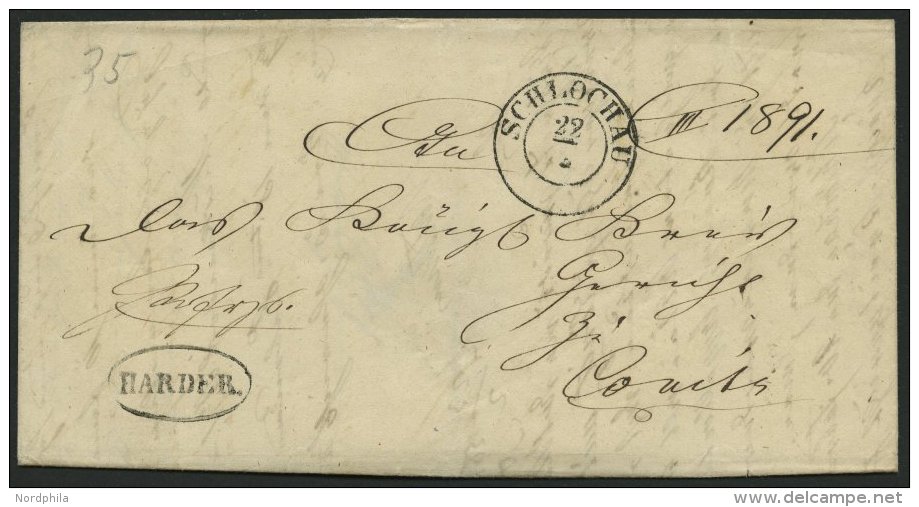 35
SCHLOCHAU
22
2
An
III 1891.
Das Königl Kreis
Gericht
zu
Conitz
HARDER.
Nordphila
delcampe.net